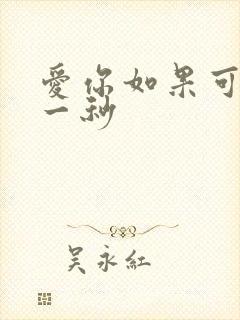 愛你如果可
一秒
吴永紅